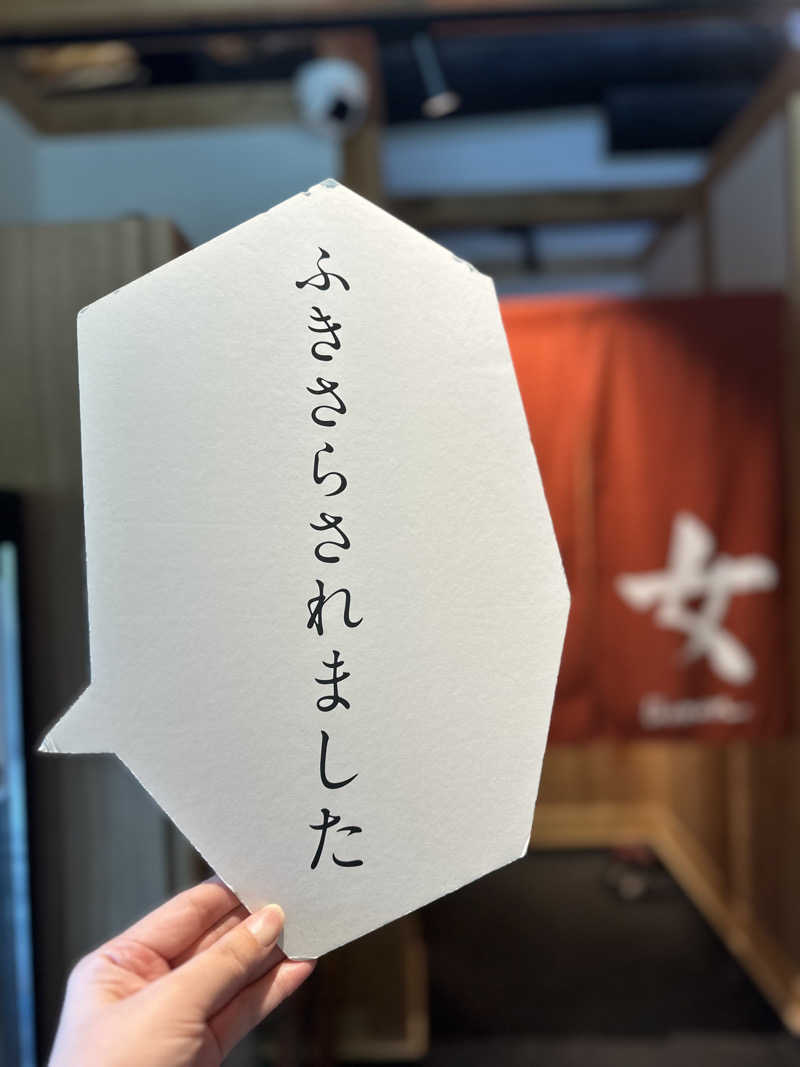 ふきさらされました
女